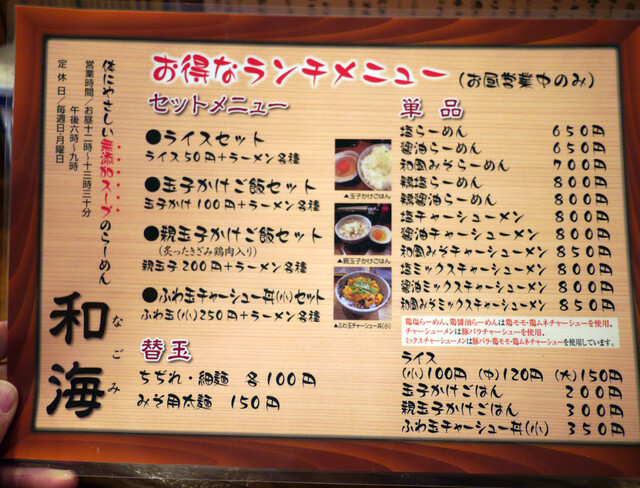 お得なランチメニュー(お昼営業中のみ)
体にやさしい無添加スープのらーめん
営業時間/お昼十二時〜十三時三十分
午後六時〜九時
定休日/毎週日・月曜日
和海
なごみ
セットメニュー
●ライスセット
ライス50円+ラーメン各種
●玉子かけご飯セット
玉子かけ100円+ラーメン各種
●親玉子かけご飯セット
(炙ったきざみ鶏肉入り)
親玉子200円+ラーメン各種
●ふわ玉チャーシュー丼(小)セット
ふわ玉(小)250円+ラーメン各種
▲玉子かけごはん
▲親玉子かけごはん
▲ふわ玉チャーシュー丼(小)
替玉
ちぢれ・細麺 各100円
みそ用太麺 150円
単品
塩らーめん 650円
醤油らーめん 650円
和風みそらーめん 700円
鶏塩らーめん 800円
鶏醤油らーめん 800円
塩チャーシューメン 800円
醤油チャーシューメン 800円
和風みそチャーシューメン 850円
塩ミックスチャーシューメン 800円
醤油ミックスチャーシューメン 800円
和風みそミックスチャーシューメン 850円
鶏塩らーめん、鶏醤油らーめんは鶏モモ・鶏ムネチャーシューを使用、
チャーシューメンは豚バラチャーシューを使用、
ミックスチャーシューメンは豚バラ・鶏モモ・鶏ムネチャーシューを使用しています。
ライス
(小)100円 (中)120円 (大)150円
玉子かけごはん 200円
親玉子かけごはん 300円
ふわ玉チャーシュー丼(小) 350円